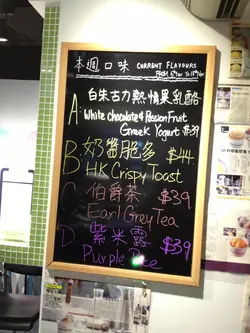 本週口味 CURRENT FLAVOURS
FROM
A: 白朱古力熱情果乳酪
White Chocolate & Passion Fruit
Greek Yogurt $39
B: 奶醬脆多 $44
HK Crispy Toast
C: 伯爵茶 $39
Earl Grey Tea
D: 紫米露 $39
Purple Rice